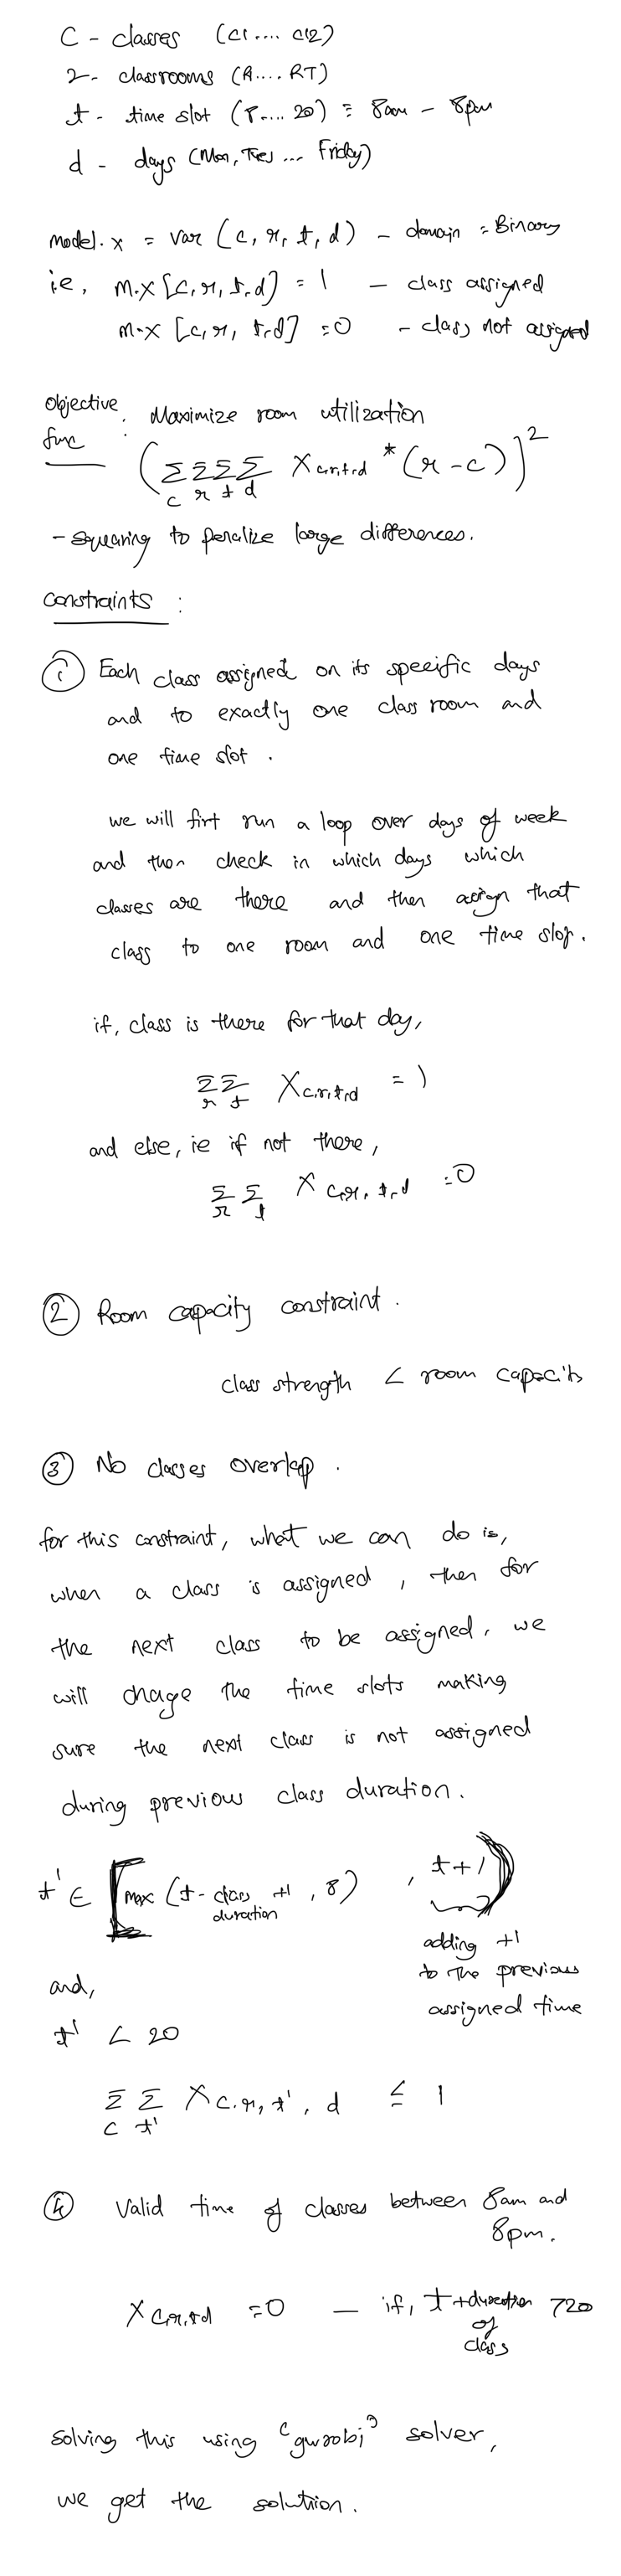 C - classes (C1 .... C12)
r - classrooms (A.... RT)
t - time slot (8.... 20) = 8am - 8pm
d - days (Mon, Tues ... Friday)
model.x = var (c, r, t, d) - domain = Binary
ie, m.x [c, r, t, d] = 1 - class assigned
m.x [c, r, t, d] = 0 - class not assigned
Objective func : Maximize room utilization
(Σ Σ Σ Σ X c,r,t,d * (r - c))]²
c r t d
- squaring to penalize large differences.
constraints :
① Each class assigned on its specific days
and to exactly one class room and
one time slot .
we will firt run a loop over days of week
and then check in which days which
classes are there and then assign that
class to one room and one time slot.
if, class is there for that day,
Σ Σ X c,r,t,d = 1
r t
and else, ie if not there,
Σ Σ X c,r, t,d = 0
r t
② Room capacity constraint .
class strength < room capacity
③ No classes overlap .
for this constraint, what we can do is,
when a class is assigned , then for
the next class to be assigned, we
will chage the time slots making
sure the next class is not assigned
during previous class duration.
t' ∈ [max (t - class duration +1 , 8) , t+1)
adding +1
to the previous
assigned time
and,
t' < 20
Σ Σ X c,r, t', d ≤ 1
c t'
④ Valid time of classes between 8am and
8pm.
X c,r,t,d = 0 — if, t + duration > 20
of
class
solving this using 'gurobi' solver,
we get the solution.